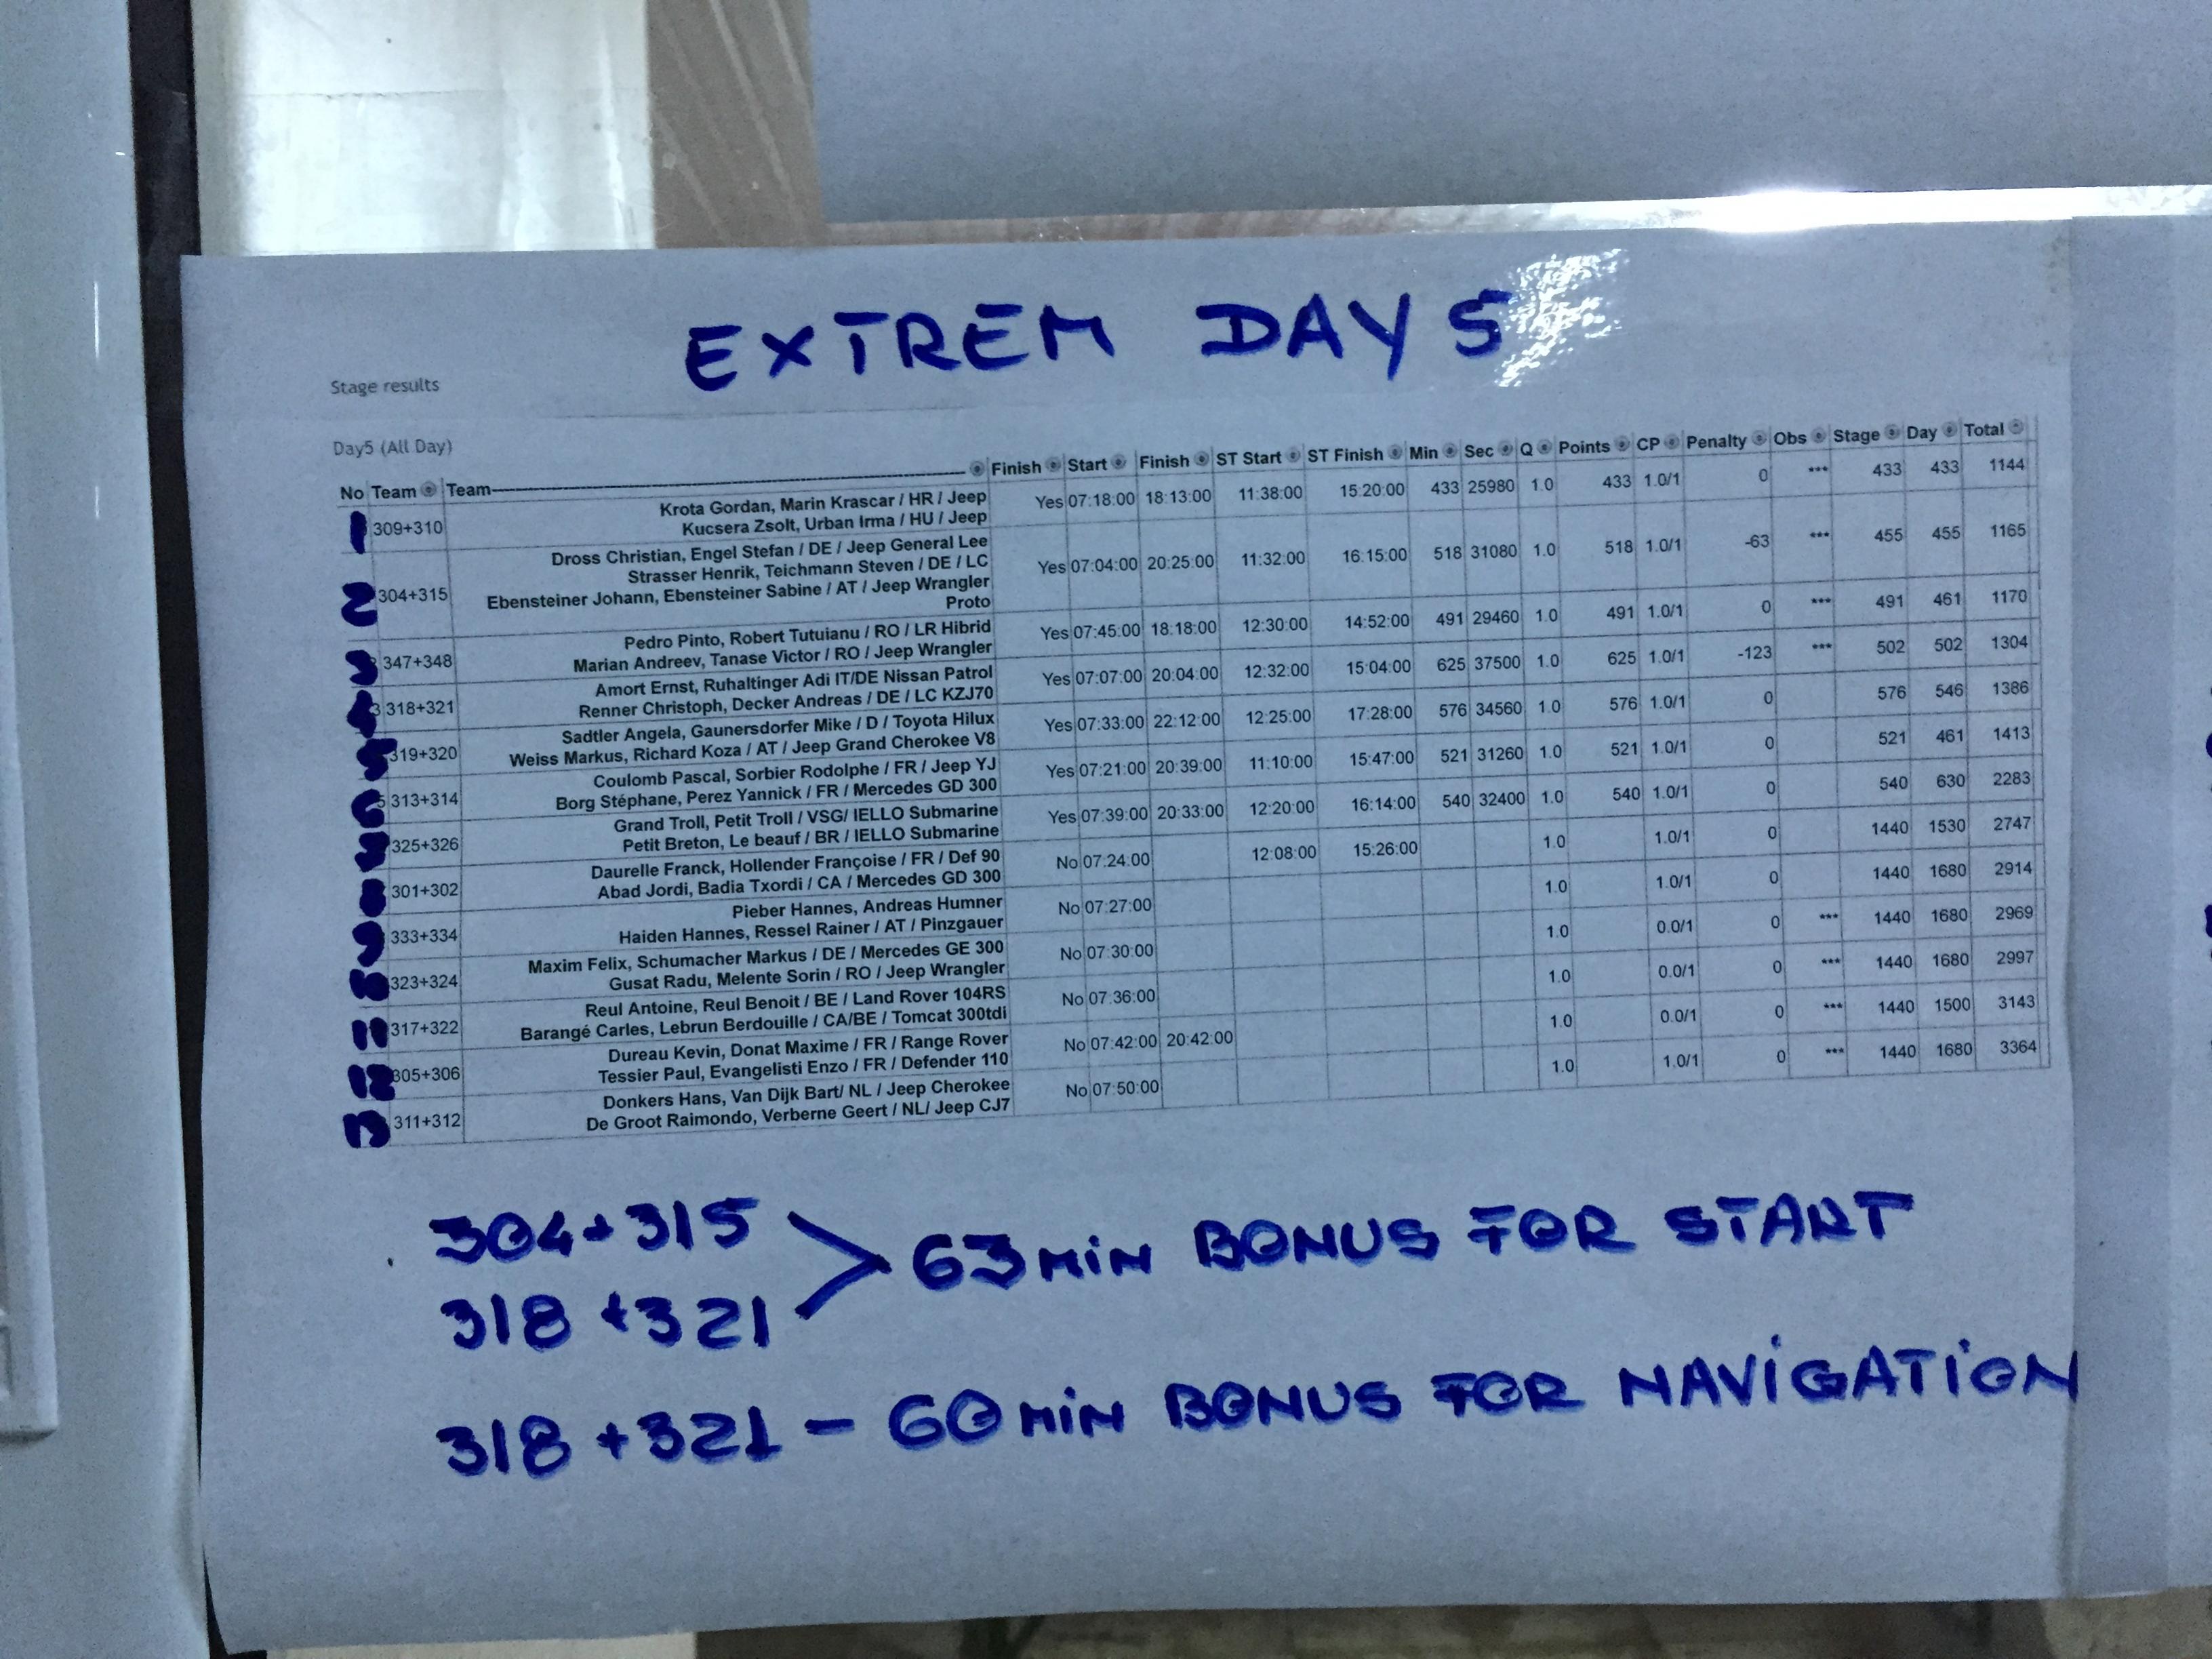 EXTREM DAY 5
Stage results
Day5 (All Day)
No Team Team Finish Start Finish ST Start ST Finish Min Sec Q Points CP Penalty Obs Stage Day Total
Krota Gordan, Marin Krascar / HR / Jeep
1 309+310 Kucsera Zsolt, Urban Irma / HU / Jeep Yes 07:18:00 18:13:00 11:38:00 15:20:00 433 25980 1.0 433 1.0/1 0 *** 433 433 1144
Dross Christian, Engel Stefan / DE / Jeep General Lee
Strasser Henrik, Teichmann Steven / DE / LC
2 304+315 Ebensteiner Johann, Ebensteiner Sabine / AT / Jeep Wrangler Yes 07:04:00 20:25:00 11:32:00 16:15:00 518 31080 1.0 518 1.0/1 -63 *** 455 455 1165
Proto
Pedro Pinto, Robert Tutuianu / RO / LR Hibrid
3 347+348 Marian Andreev, Tanase Victor / RO / Jeep Wrangler Yes 07:45:00 18:18:00 12:30:00 14:52:00 491 29460 1.0 491 1.0/1 0 *** 491 461 1170
Amort Ernst, Ruhaltinger Adi IT/DE Nissan Patrol
4 318+321 Renner Christoph, Decker Andreas / DE / LC KZJ70 Yes 07:07:00 20:04:00 12:32:00 15:04:00 625 37500 1.0 625 1.0/1 -123 *** 502 502 1304
Sadtler Angela, Gaunersdorfer Mike / D / Toyota Hilux
5 319+320 Weiss Markus, Richard Koza / AT / Jeep Grand Cherokee V8 Yes 07:33:00 22:12:00 12:25:00 17:28:00 576 34560 1.0 576 1.0/1 0 576 546 1386
Coulomb Pascal, Sorbier Rodolphe / FR / Jeep YJ
6 313+314 Borg Stéphane, Perez Yannick / FR / Mercedes GD 300 Yes 07:21:00 20:39:00 11:10:00 15:47:00 521 31260 1.0 521 1.0/1 0 521 461 1413
Grand Troll, Petit Troll / VSG/ IELLO Submarine
7 325+326 Petit Breton, Le beauf / BR / IELLO Submarine Yes 07:39:00 20:33:00 12:20:00 16:14:00 540 32400 1.0 540 1.0/1 0 540 630 2283
Daurelle Franck, Hollender Françoise / FR / Def 90
8 301+302 Abad Jordi, Badia Txordi / CA / Mercedes GD 300 No 07:24:00 12:08:00 15:26:00 1.0 1.0/1 0 1440 1530 2747
Pieber Hannes, Andreas Humner
9 333+334 Haiden Hannes, Ressel Rainer / AT / Pinzgauer No 07:27:00 1.0 1.0/1 0 1440 1680 2914
Maxim Felix, Schumacher Markus / DE / Mercedes GE 300
10 323+324 Gusat Radu, Melente Sorin / RO / Jeep Wrangler No 07:30:00 1.0 0.0/1 0 *** 1440 1680 2969
Reul Antoine, Reul Benoit / BE / Land Rover 104RS
11 317+322 Barangé Carles, Lebrun Berdouille / CA/BE / Tomcat 300tdi No 07:36:00 1.0 0.0/1 0 *** 1440 1680 2997
Dureau Kevin, Donat Maxime / FR / Range Rover
12 305+306 Tessier Paul, Evangelisti Enzo / FR / Defender 110 No 07:42:00 20:42:00 1.0 0.0/1 0 *** 1440 1500 3143
Donkers Hans, Van Dijk Bart/ NL / Jeep Cherokee
13 311+312 De Groot Raimondo, Verberne Geert / NL/ Jeep CJ7 No 07:50:00 1.0 1.0/1 0 *** 1440 1680 3364
304+315 > 63 MiN BONUS FOR START
318 +321
318 +321 - 60 MiN BONUS FOR NAViGATiON